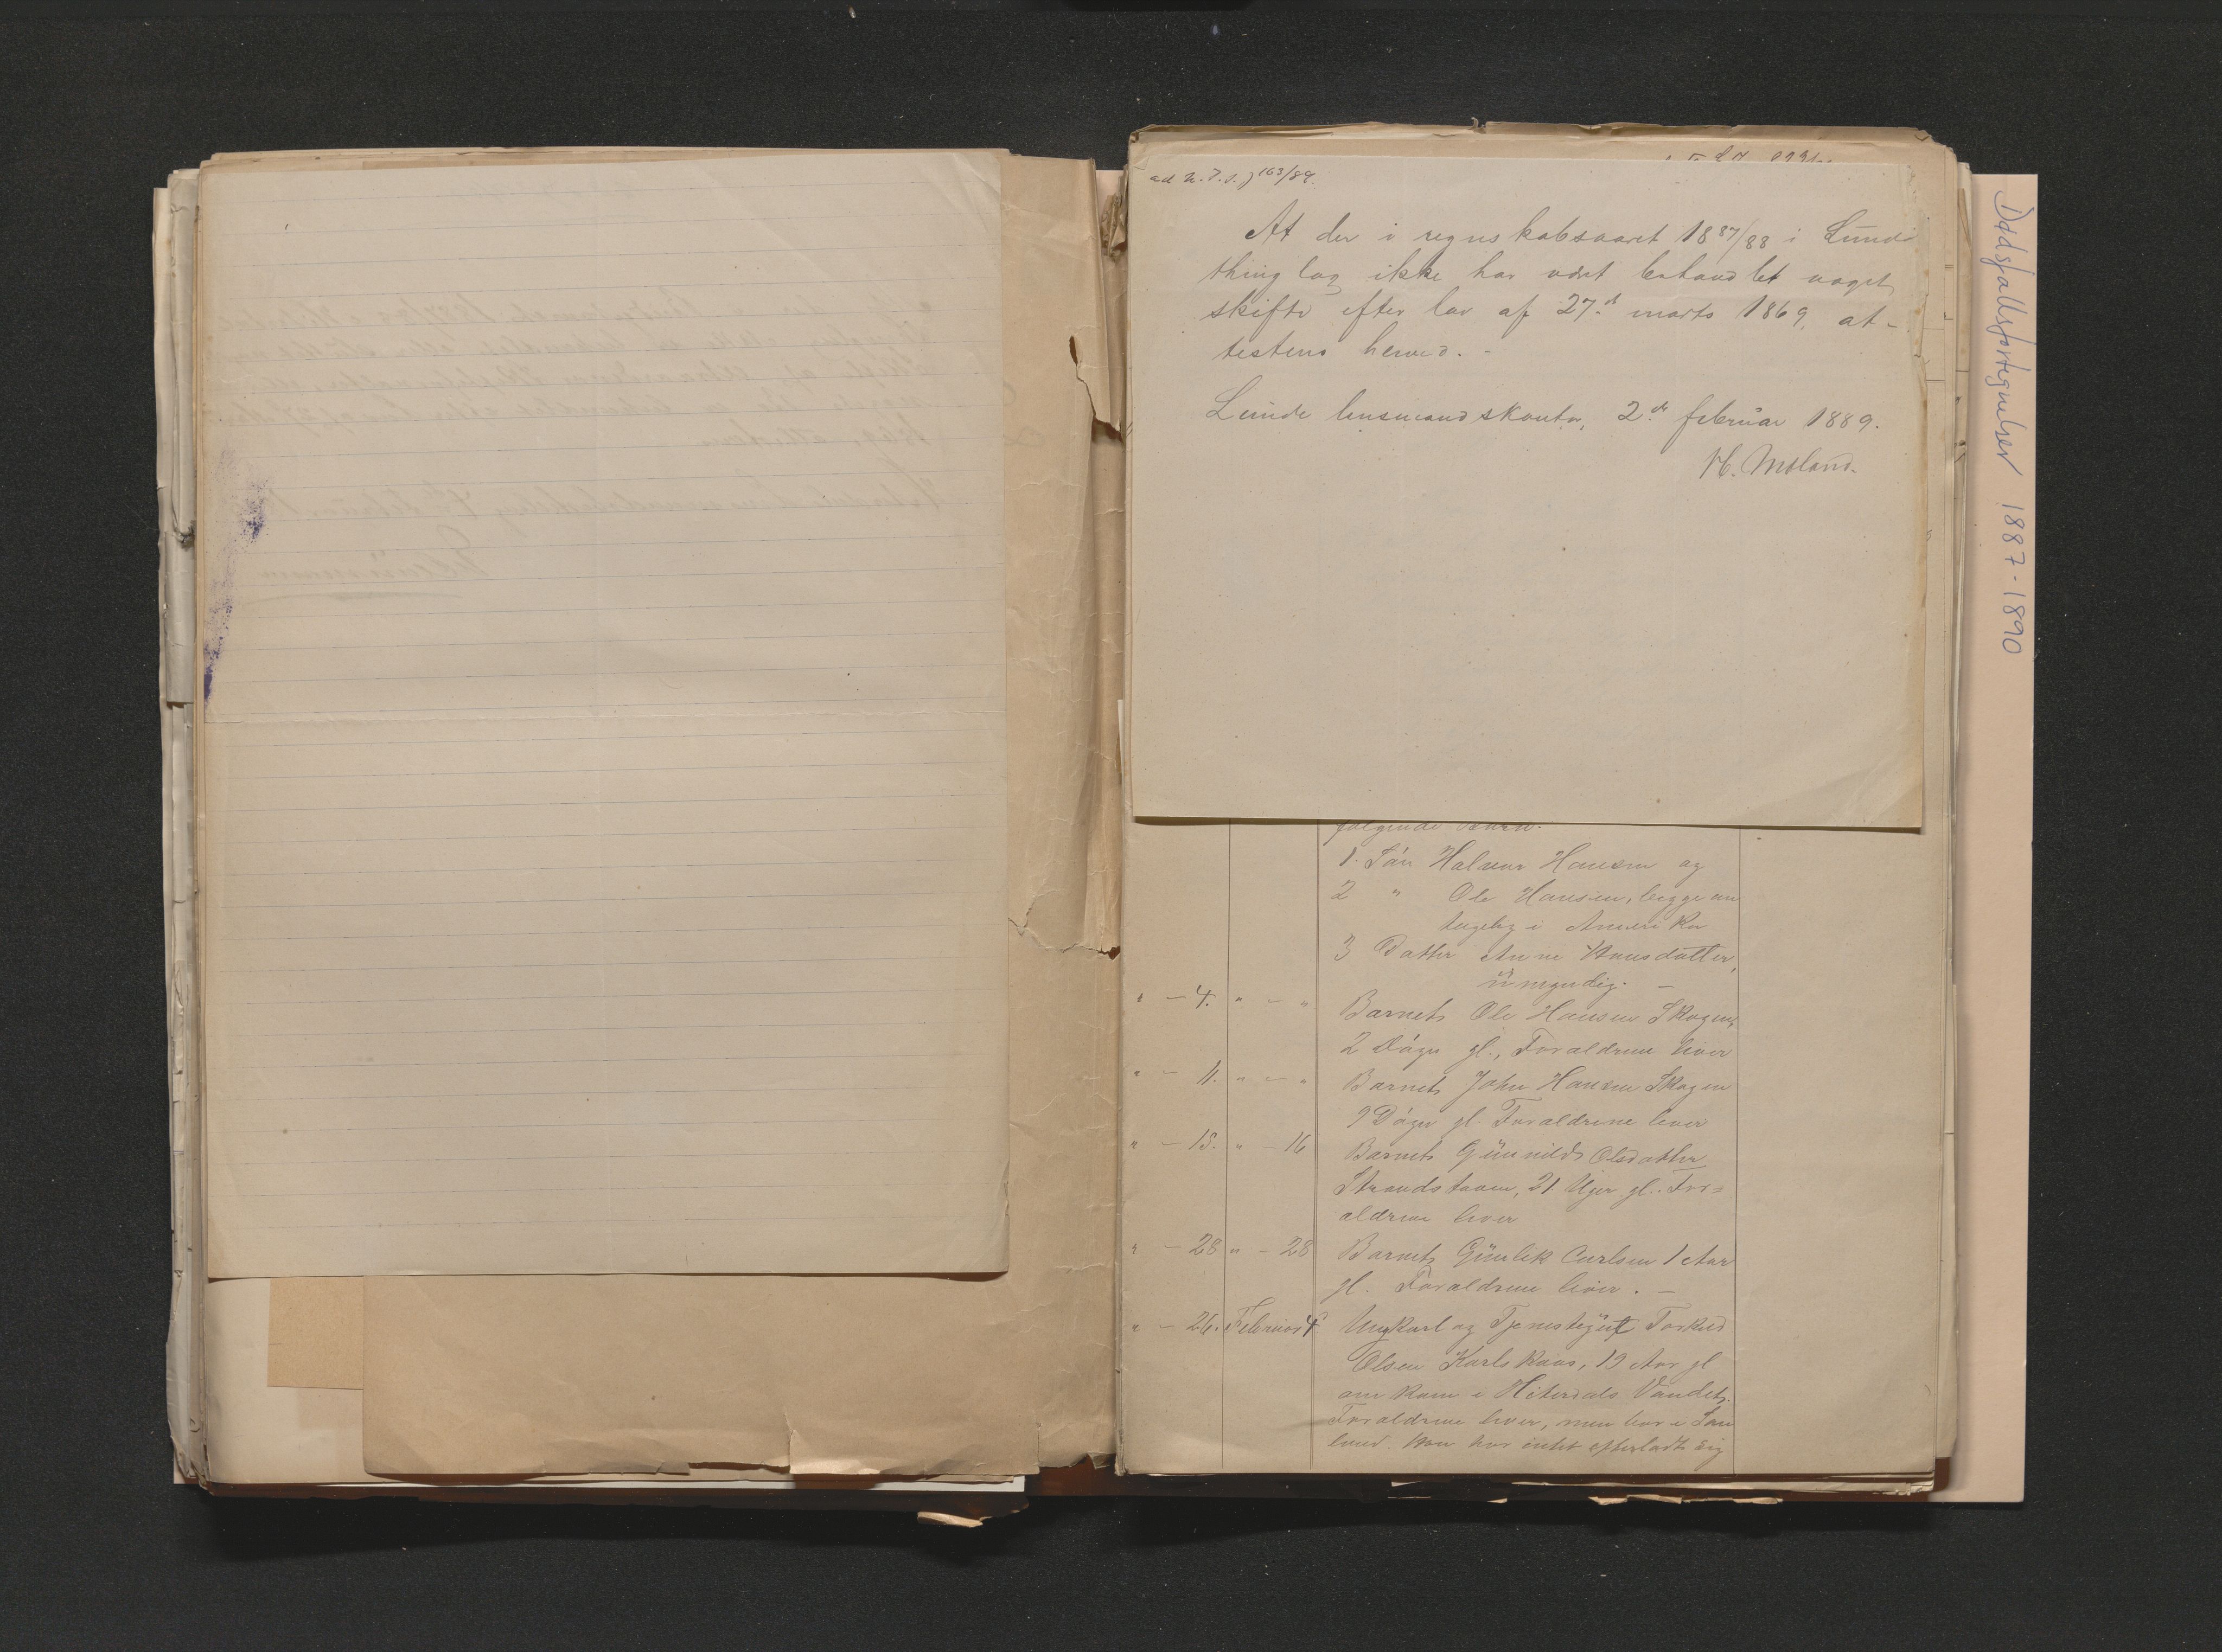 ad N. T. s. j 163/89.
At der i regnskabsaaret 1887/88 i Lunde
thinglag ikke har vært behandlet noget
skifte efter lov af 27de marts 1869, at-
testeres herved. -
Lunde lensmandskontor, 2de februar 1889.
H. Moland.
følgende Børn.
1. Søn Halvor Hansen og
2 " Ole Hansen, begge an
tagelig i Amerika
3 Datter Anne Hansdatter,
umyndig. -
" - 4. " - " Barnet Ole Hansen Skogen,
2 Døgn gl., Forældrene lever
" - 11. " - " Barnet John Hansen Skogen
9 Døgn gl. Forældrene lever
" - 15. " - 16 Barnet Gunnild Olsdatter
Strandstaaen, 21 Uger gl. For=
ældrene lever
" - 28 " - 28 Barnet Gunlik Carlsen 1 Aar
gl. Forældrene lever. -
" - 26. Februar 4 Ungkarl og Tjenestegut Torkild
Olsen Karlskaas, 19 Aar gl
omkom i Hiterdals Vandet.
Forældrene lever, men bor i Sau
land. Han har intet efterladt sig
Dødsfallsfortegnelser 1887-1890